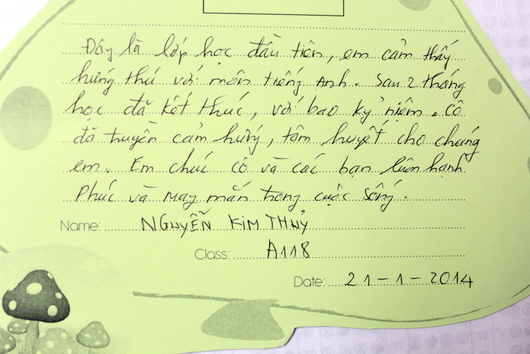 Đây là lớp học đầu tiên, em cảm thấy
hứng thú với môn tiếng Anh. Sau 2 tháng
học đã kết thúc, với bao kỷ niệm. Cô
đã truyền cảm hứng, tâm huyết cho chúng
em. Em chúc cô và các bạn luôn hạnh
Phúc và may mắn trong cuộc sống.
Name: NGUYỄN KIM THUỶ
Class: A118
Date: 21-1-2014